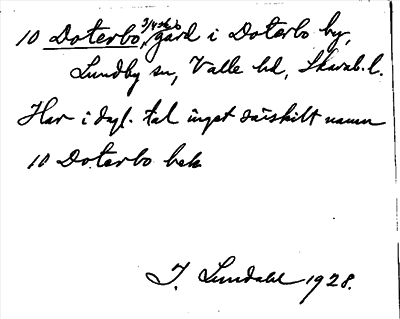 10 Doterbo, 3/4 skb gård i Doterbo by,
Lundby sn, Valle hd, Skarab. l.
Har i dagl. tal inget särskilt namn
10 Doterbo bek
I. Lundahl 1928.